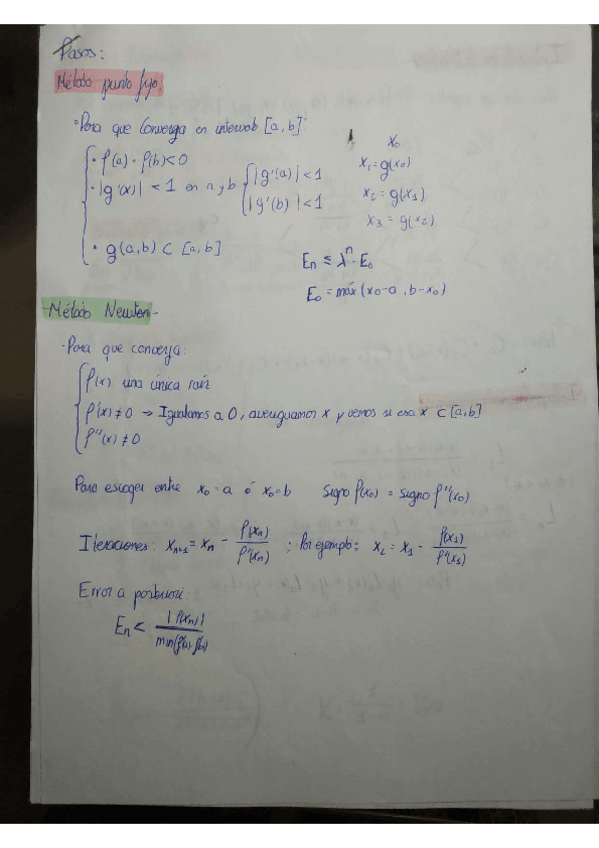 Pasos:
Método punto fijo:
• Para que converga en intervalo [a,b]:
• f(a) · f(b) < 0
• |g'(x)| < 1 en a y b { |g'(a)| < 1
|g'(b)| < 1
• g(a,b) ⊂ [a,b]
x₀
x₁ = g(x₀)
x₂ = g(x₁)
x₃ = g(x₂)
En ≤ λⁿ · E₀
E₀ = máx (x₀-a, b-x₀)
- Método Newton -
· Para que converja:
f(x) una única raíz
f'(x) ≠ 0 → Igualamos a 0, averiguamos x y vemos si esa x ⊂ [a,b]
f''(x) ≠ 0
Para escoger entre x₀ = a ó x₀ = b signo f(x₀) = signo f''(x₀)
Iteraciones: xₙ₊₁ = xₙ - f(xₙ) / f'(xₙ) ; Por ejemplo: x₂ = x₁ - f(x₁) / f'(x₁)
Error a posteriori:
En < |f(xₙ)| / min